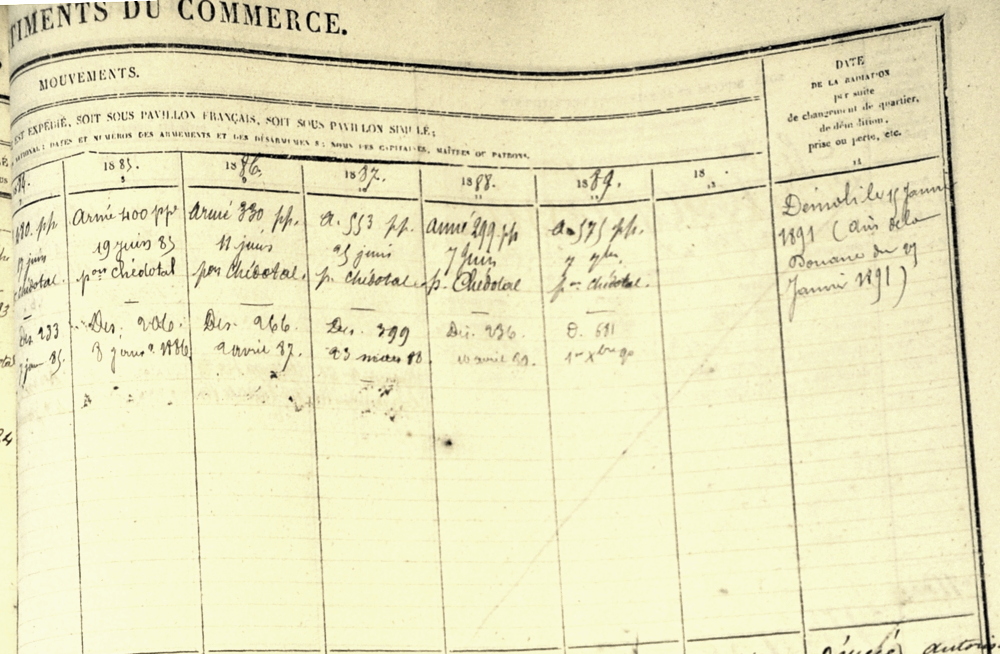 TIMENTS DU COMMERCE.
MOUVEMENTS.
EST EXPÉDIÉ, SOIT SOUS PAVILLON FRANÇAIS, SOIT SOUS PAVILLON SIMULÉ;
NATIONAL; DATES ET NUMÉROS DES ARMEMENTS ET DES DÉSARMEMENTS; NOMS DES CAPITAINES, MAÎTRES OU PATRONS.
DATE
DE LA RADIATION
par suite
de changement de quartier,
de démolition,
prise ou perte, etc.
84.
pp
17 juin
chédotal
Des 233
jan 85.
1885.
Armé 400 pp
19 juin 85
pon Chédotal
Des. 206.
8 janv. 1886
1886.
Armé 330 pp.
11 juin
pon Chédotal.
Des. 266.
2 avril 87.
1887.
A. 553 pp.
25 juin
p. Chédotal.
Des. 399
23 mars 88
1888.
Armé 299 pp
7 Juin
p. Chédotal
Des. 236.
10 avril 89.
1889.
A. 575 pp.
7
pon chédotal.
D. 681
1er Xbre 90
18
Démoli le 15 Janvier
1891 (avis de la
Douane du 27
Janvier 1891)
antoni